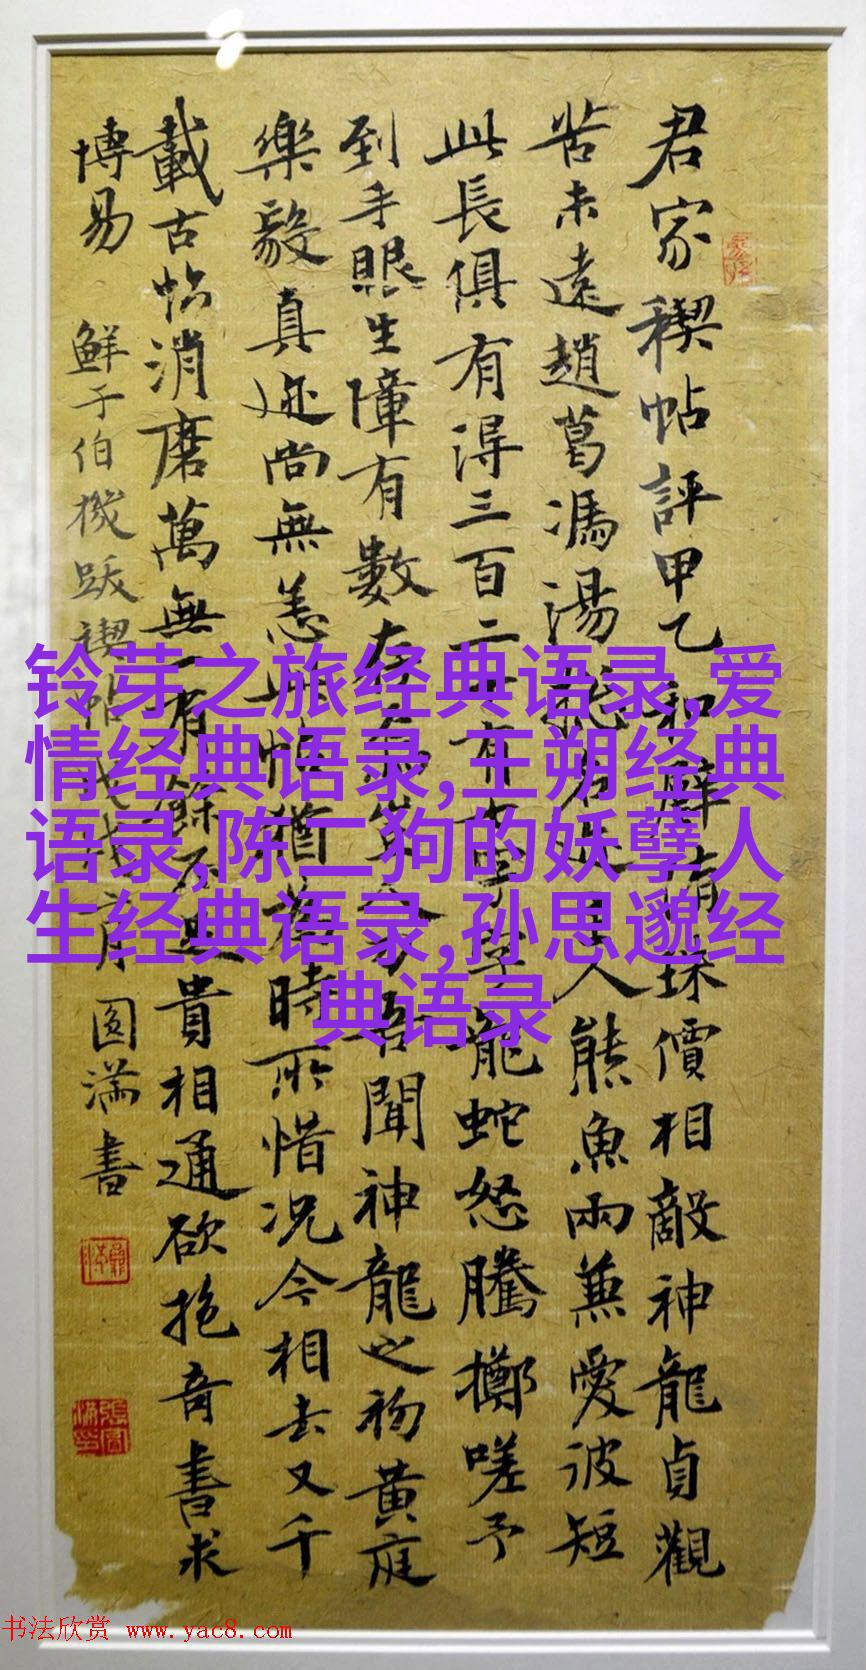 君家稧帖評甲乙和璧隋珠價相敵神龍貞觀
苦未遠趙葛馮湯總名人熊魚兩兼愛彼短
此長俱有得三百二十有七字字龍蛇怒騰擲嗟予
到手眼生障有數存吾聞神龍之初黃庭
樂毅真迹尚無恙此帖猶為時所惜况今相去又千
載古帖消磨萬無一有餘不足貴相通欲抱奇書求
博易
鮮于伯機跋禊帖 圓滿書
铃芽之旅经典语录,爱
情经典语录,王朔经典
语录,陈二狗的妖孽人
生经典语录,孙思邈经
典语录
书法欣赏 www.yac8.com